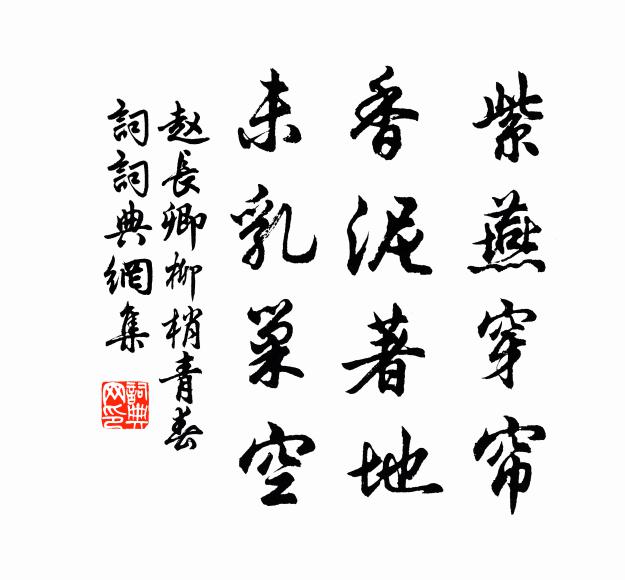 紫燕穿帘
香泥著地
未乳巢空
赵長卿柳梢青春
詞詞典網集
詞典网印